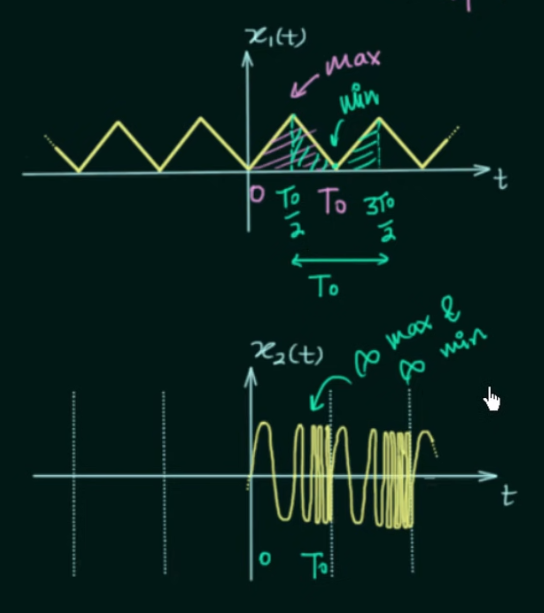 x₁(t)
max
min
t
0 T₀/2 T₀ 3T₀/2
T₀
x₂(t)
∞ max &
∞ min
t
0 T₀